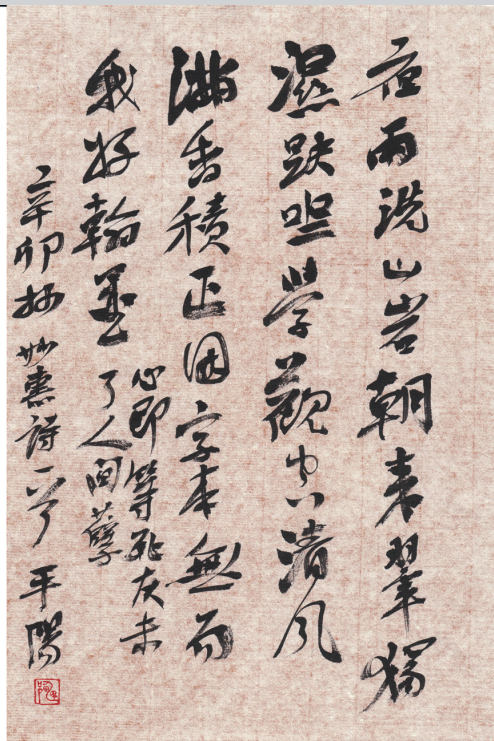 夜雨洗山岩朝来翠犹
湿趺坐学观空清风
满香积正因字本无而
我好翰墨
心即等死灰未
了人间孽
辛卯抄妙惠诗一首
平阳